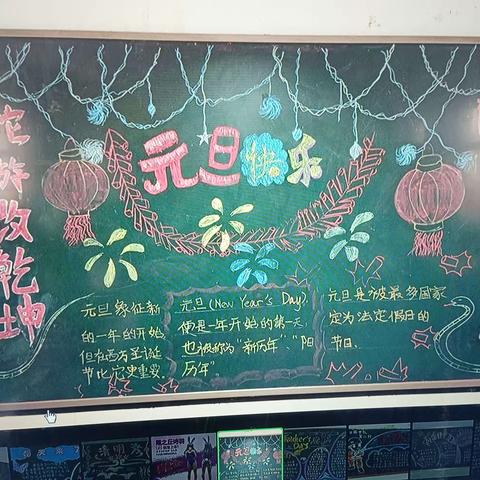 元旦快乐
元旦象征新
的一年的开始,
但在西方圣诞
节比它更重要.
元旦(New Year's Day)
便是一年开始的第一天
也被称为"新历年""阳
历年"
元旦是被最多国家
定为法定假日的
节日.
旋乾
坤
清明